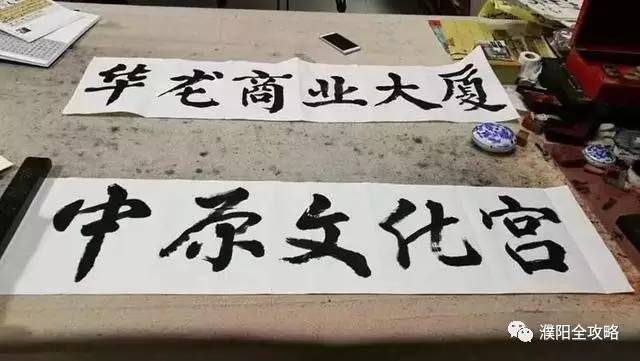 华龙商业大厦
中原文化宫
濮阳全攻略